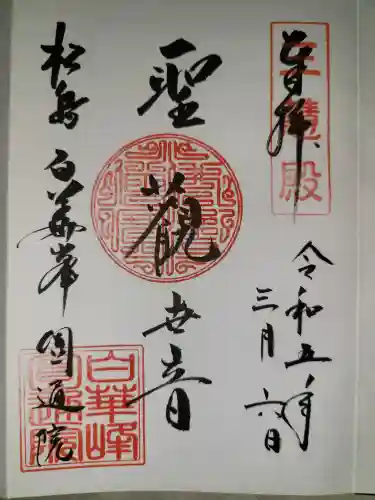 奉拝
三慧殿
令和五年
三月六日
聖観世音
松島 白華峰 圓通院
白華峰
圓通院